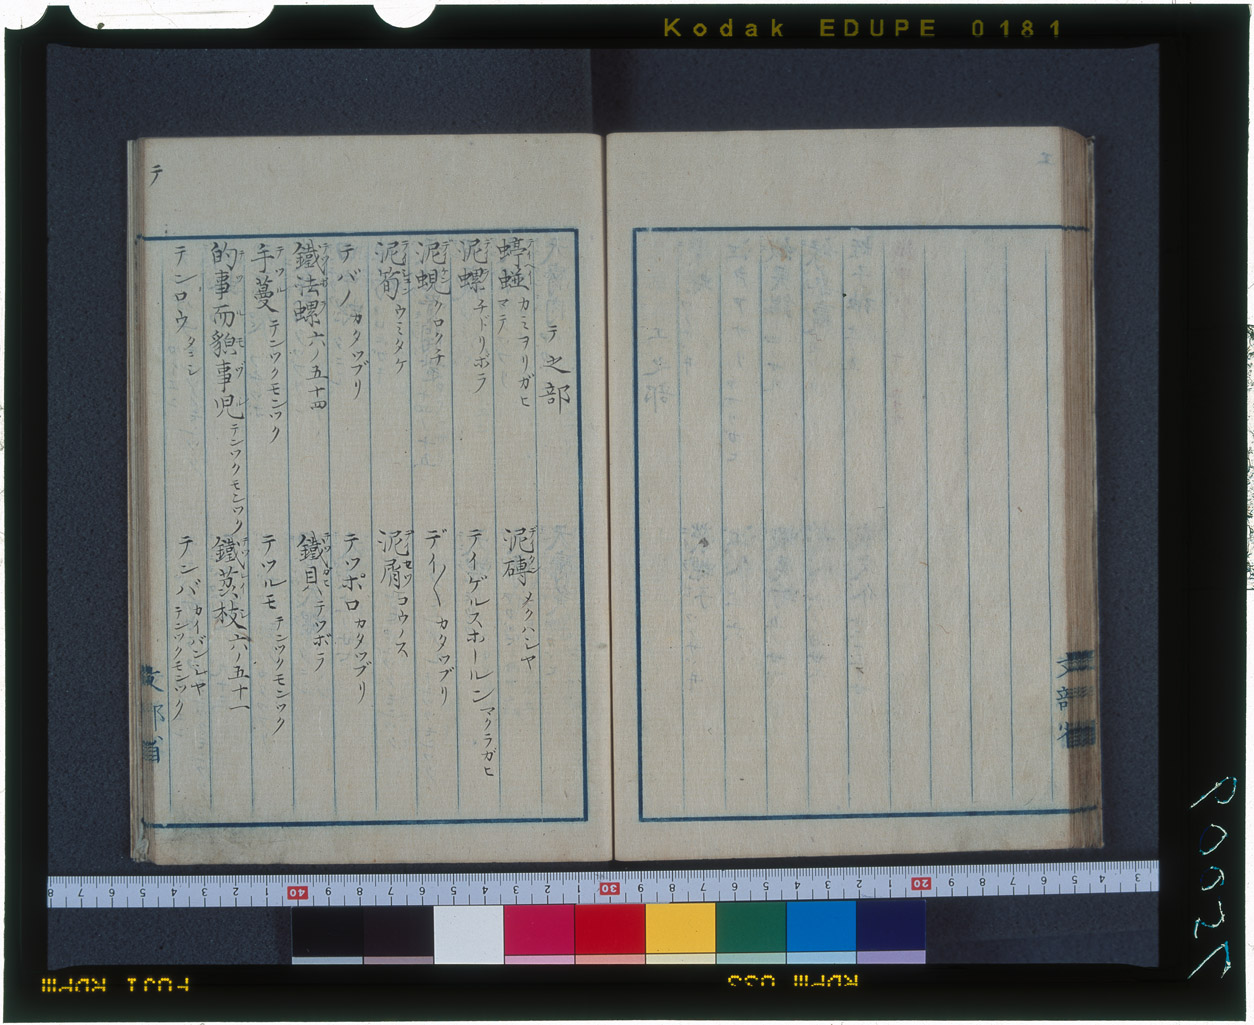 Kodak EDUPE 0181
テ
テ之部
蝏蛖 カミヲリガヒ マテ
泥磚 メクハシヤ
泥螺 チドリボラ
テイゲルスホールン マクラガヒ
泥蜆 クロクチ
デイ〱 カタツブリ
泥筍 ウミタケ
泥屑 コウノス
テバノ カタツブリ
テツポロ カタツブリ
鐵法螺 六ノ五十四
鐵貝 テツボラ
手蔓 テンツクモンツク
テツルモ テンツクモンツク
的事而貌事児 テンツクモンツク
鐵蕊枝 六ノ五十一
テンロウ タニシ
テンバ カイバンシヤ テンツクモンツク
文部省
文部省
40
30
20
FUJI RDPIII
RDPIII 033